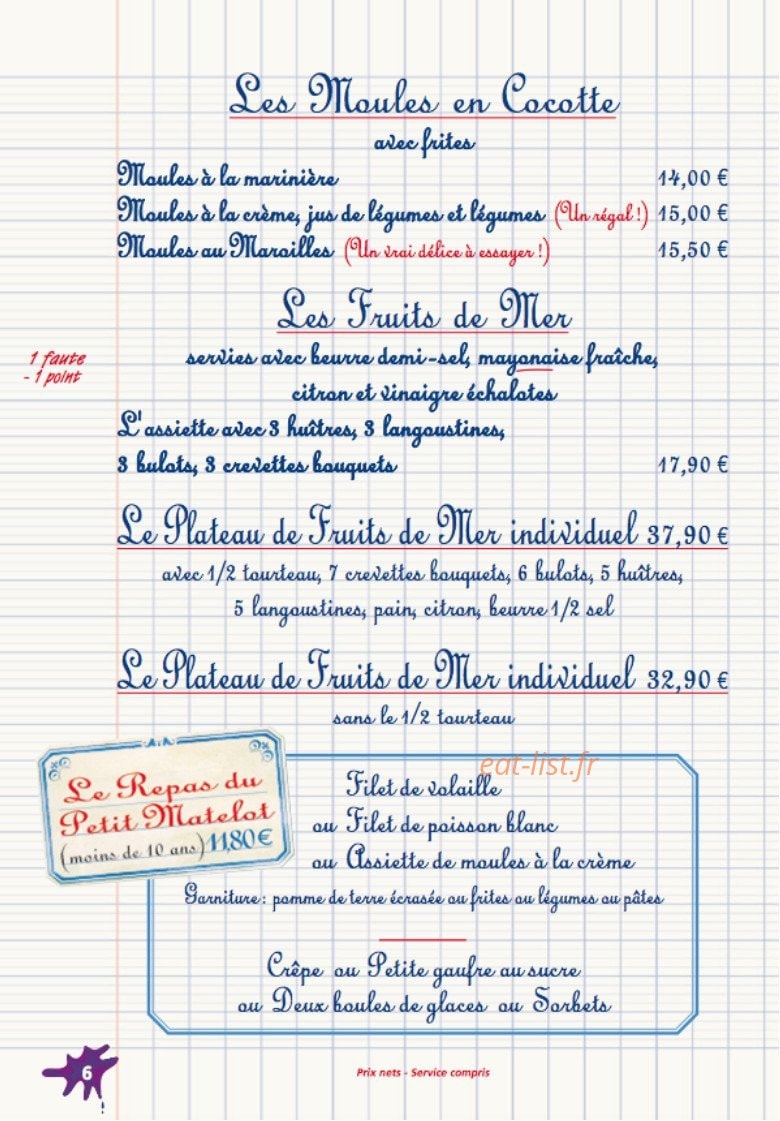 Les Moules en Cocotte
avec frites
Moules à la marinière 14,00 €
Moules à la crème, jus de légumes et légumes (Un régal !) 15,00 €
Moules au Maroilles (Un vrai délice à essayer !) 15,50 €
Les Fruits de Mer
1 faute
- 1 point
servies avec beurre demi-sel, mayonaise fraîche,
citron et vinaigre échalotes
L'assiette avec 3 huîtres, 3 langoustines,
3 bulots, 3 crevettes bouquets 17,90 €
Le Plateau de Fruits de Mer individuel 37,90 €
avec 1/2 tourteau, 7 crevettes bouquets, 6 bulots, 5 huîtres,
5 langoustines, pain, citron, beurre 1/2 sel
Le Plateau de Fruits de Mer individuel 32,90 €
sans le 1/2 tourteau
eat-list.fr
Le Repas du
Petit Matelot
(moins de 10 ans) 11,80 €
Filet de volaille
ou Filet de poisson blanc
ou Assiette de moules à la crème
Garniture : pomme de terre écrasée ou frites ou légumes ou pâtes
Crêpe ou Petite gaufre au sucre
ou Deux boules de glaces ou Sorbets
6
Prix nets - Service compris